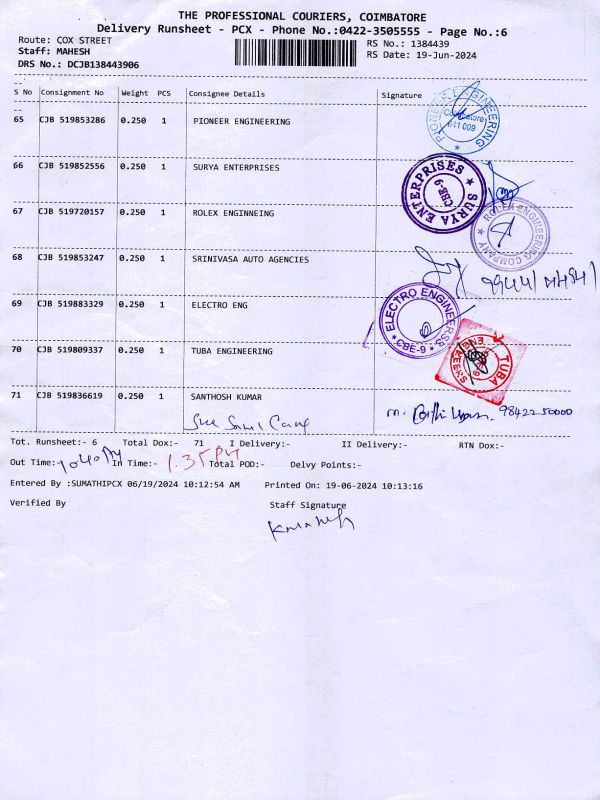 THE PROFESSIONAL COURIERS, COIMBATORE
Delivery Runsheet - PCX - Phone No.:0422-3505555 - Page No.:6
Route: COX STREET
RS No.: 1384439
Staff: MAHESH
RS Date: 19-Jun-2024
DRS No.: DCJB138443906
S No Consignment No Weight PCS Consignee Details Signature
65 CJB 519853286 0.250 1 PIONEER ENGINEERING
PIONEER ENGINEERING
Coimbatore
641 009
66 CJB 519852556 0.250 1 SURYA ENTERPRISES
SURYA ENTERPRISES
CBE-9
67 CJB 519720157 0.250 1 ROLEX ENGINNEING
ROLEX ENGINEERING COMPANY
68 CJB 519853247 0.250 1 SRINIVASA AUTO AGENCIES
69 CJB 519883329 0.250 1 ELECTRO ENG
ELECTRO ENGINEERSS
CBE-9
70 CJB 519809337 0.250 1 TUBA ENGINEERING
TUBA
ENGINEERS
71 CJB 519836619 0.250 1 SANTHOSH KUMAR
9842250000
Tot. Runsheet:- 6 Total Dox:- 71 I Delivery:- II Delivery:- RTN Dox:-
Out Time:- 10 40 AM In Time:- 1.35 PM Total POD:- Delvy Points:-
Entered By :SUMATHIPCX 06/19/2024 10:12:54 AM Printed On: 19-06-2024 10:13:16
Verified By Staff Signature